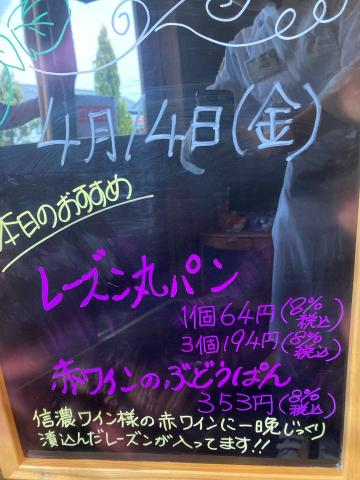 4月14日(金)
本日のおすすめ
レーズン丸パン
1個64円(8%税込)
3個194円(8%税込)
赤ワインのぶどうぱん
353円(8%税込)
信濃ワイン様の赤ワインに一晩じっくり
漬込んだレーズンが入ってます!!